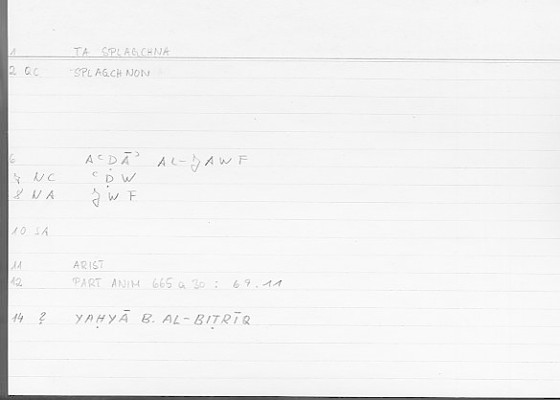 1 TA SPLAGCHNA
2 QC SPLAGCHNON
6 AʿḌĀʾ AL-ǦAWF
7 NC ʿḌW
8 NA ǦWF
10 SA
11 ARIST
12 PART ANIM 665 a 30 : 69.11
14 ? YAḤYĀ B. AL-BIṬRĪQ